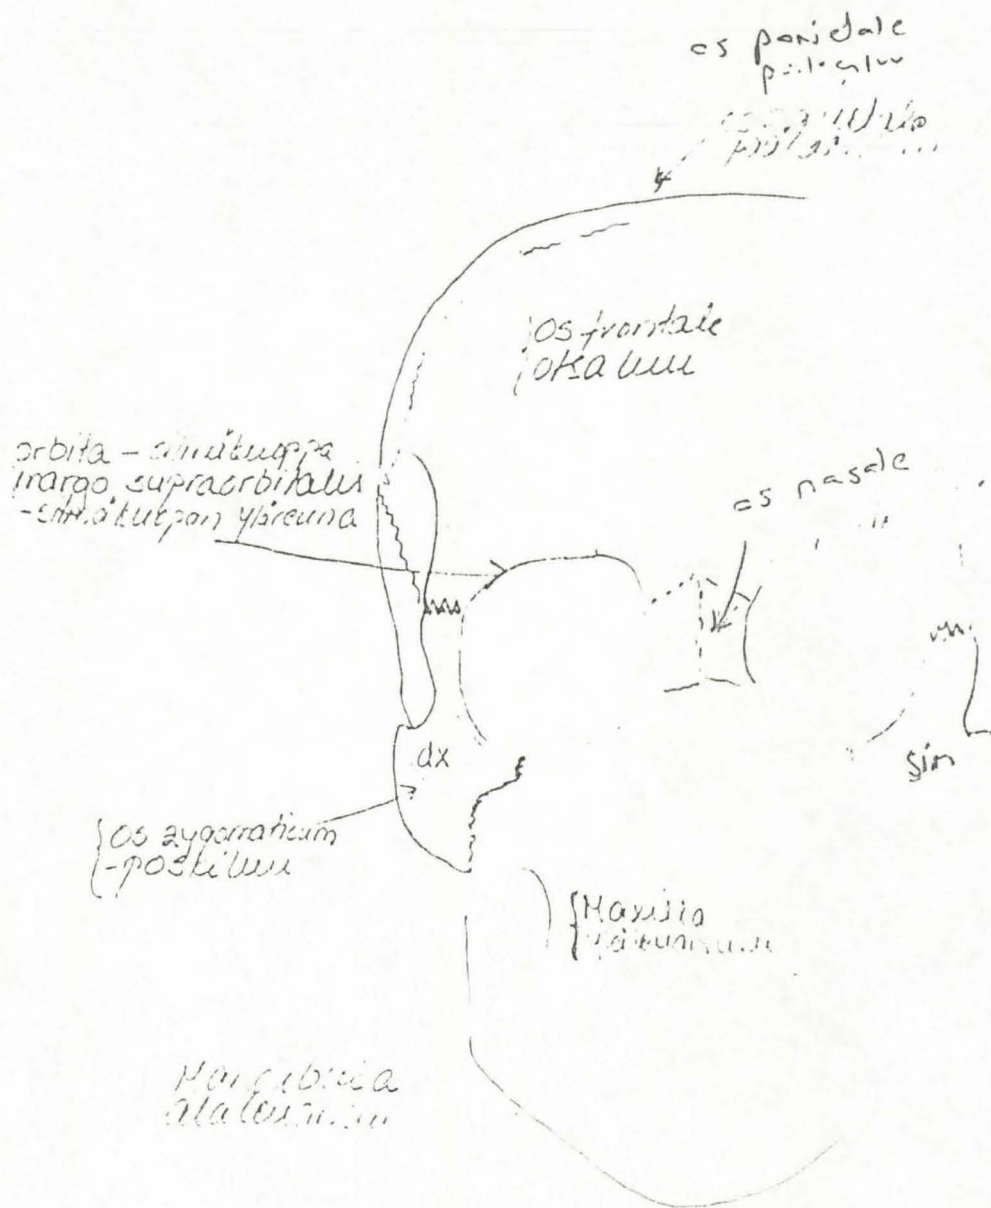 os parietale
Os frontale
otsaluu
orbita - silmäkuoppa
margo supraorbitalis
-silmäkuopan yläreuna
os nasale
dx
sin
Os zygomaticum
-poskiluu
Maxilla
yläleukaluu
Mandibula
alaleukaluu